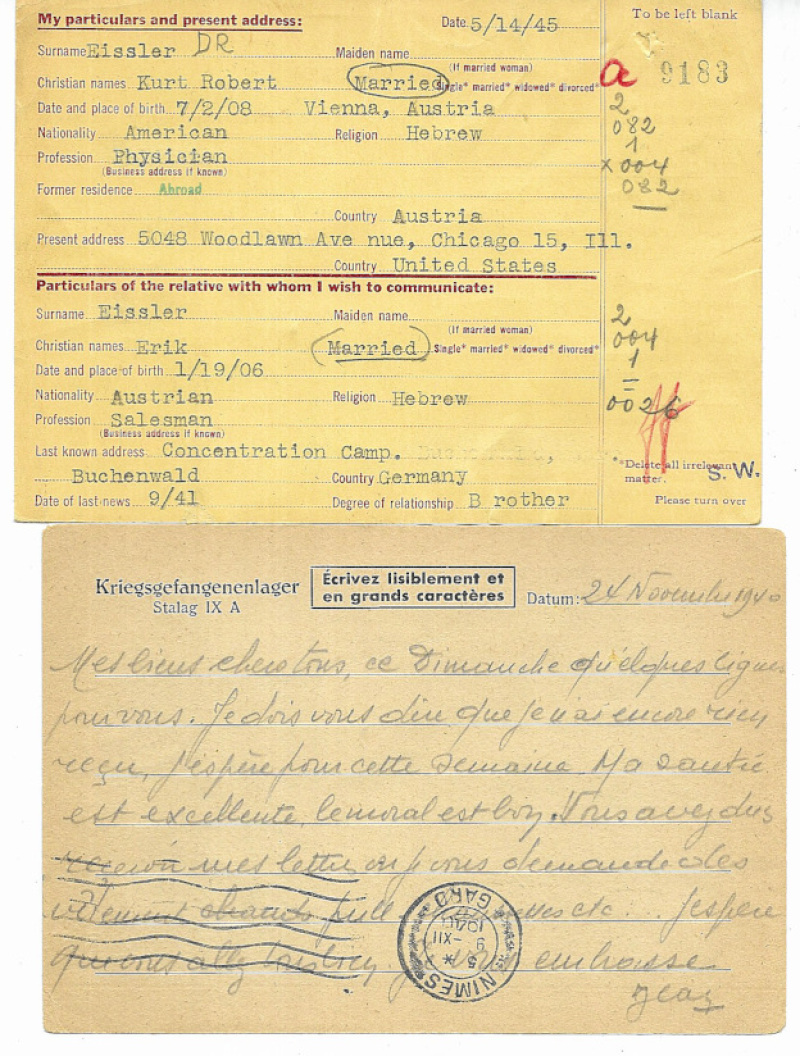 My particulars and present address: Date 5/14/45 To be left blank
Surname Eissler DR Maiden name
(If married woman)
Christian names Kurt Robert Married Single* married* widowed* divorced*
a 9183
Date and place of birth 7/2/08 Vienna, Austria
2
082
Nationality American Religion Hebrew
1
Profession Physician
(Business address if known)
x 004
Former residence Abroad
082
Country Austria
Present address 5048 Woodlawn Ave nue, Chicago 15, Ill.
Country United States
Particulars of the relative with whom I wish to communicate:
Surname Eissler Maiden name
(If married woman)
2
004
Christian names Erik Married Single* married* widowed* divorced*
1
Date and place of birth 1/19/06
Nationality Austrian Religion Hebrew
0026
Profession Salesman
(Business address if known)
Last known address Concentration Camp.
Buchenwald Country Germany
*Delete all irrelevant
matter.
S.W.
Date of last news 9/41 Degree of relationship B rother
Please turn over
Kriegsgefangenenlager
Stalag IX A
Écrivez lisiblement et
en grands caractères
Datum: 24 Novembre 1940
Mes biens chers tous, ce Dimanche quelques lignes
pour vous. Je dois vous dire que je n'ai encore rien
reçu, j'espère pour cette semaine. Ma santé
est excellente, le moral est bon. Vous avez du
recevoir mes lettres ou je vous demande des
vêtements chauds pull etc... J'espère
que vous allez tous bien, je vous embrasse
Jean
NIMES GARD
5 *
9 -XII
1940